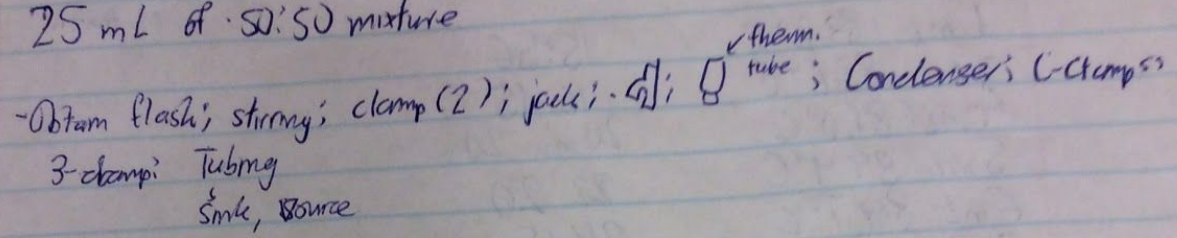 25 mL of 50:50 mixture
therm.
-Obtain flask; stirring; clamp (2); jack; ; tube; Condenser; C-clamps;
3-clamp; Tubing
Sink, source